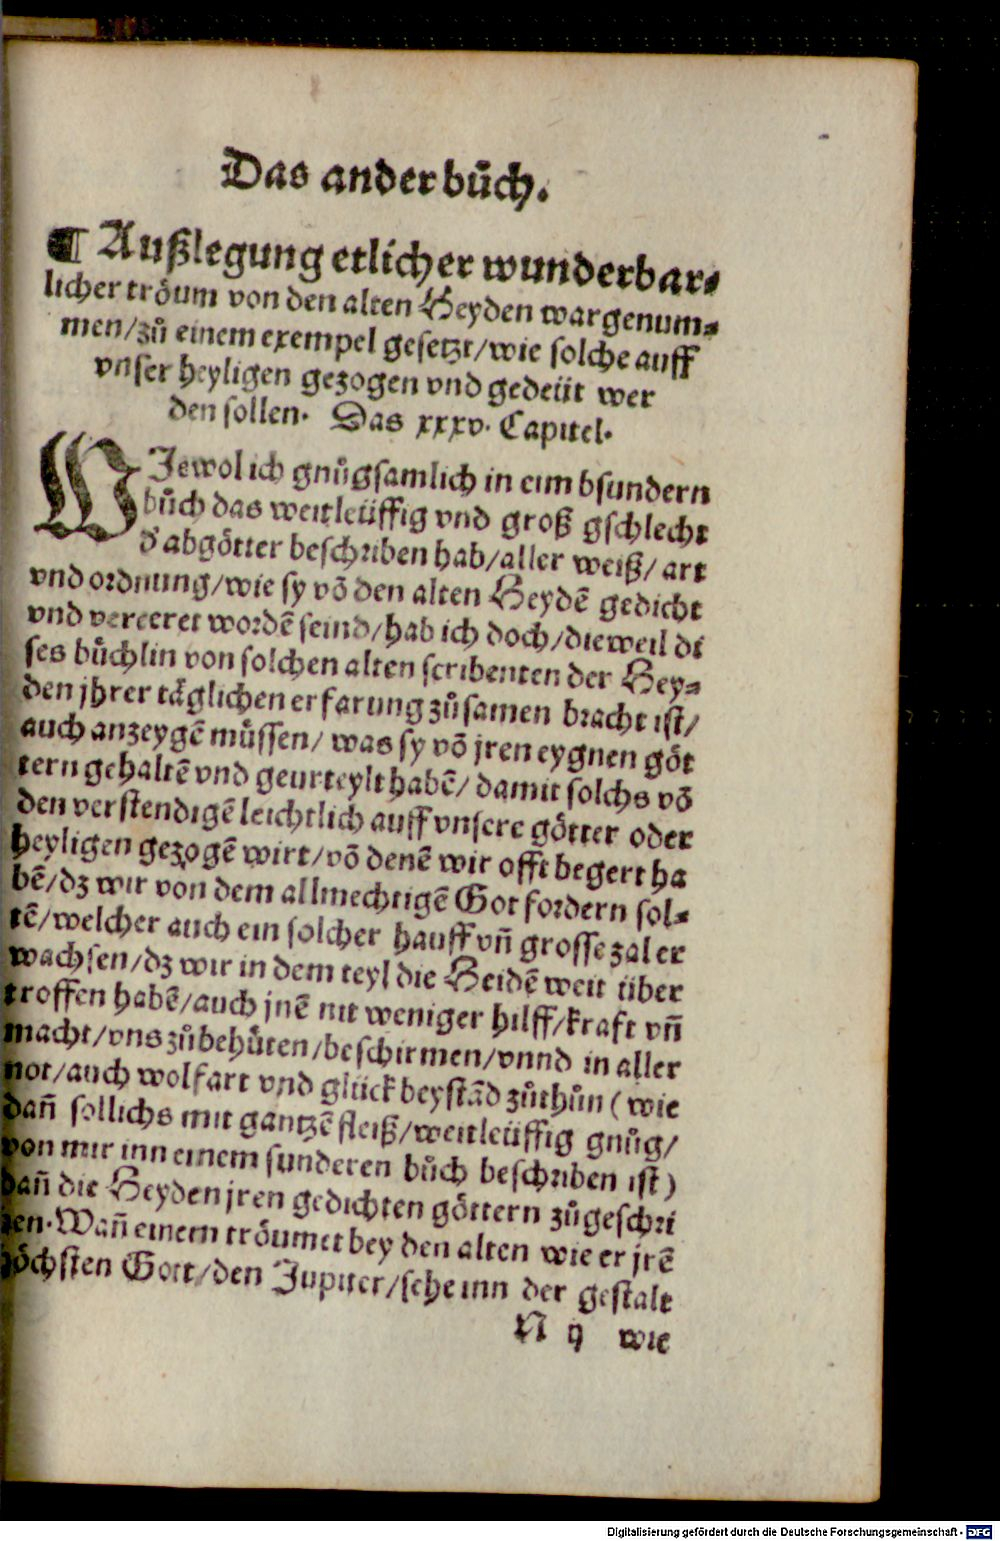 Das ander bůch.
¶ Außlegung etlicher wunderbar⸗
licher trőum von den alten Heyden wargenum⸗
men/zů einem exempel gesetzt/wie solche auff
vnser heyligen gezogen vnd gedeüt wer
den sollen. Das xxxv. Capitel.
WJewol ich gnůgsamlich in eim bsundern
bůch das weitleüffig vnd groß gschlecht
d' abgötter beschriben hab/aller weiß/ art
vnd ordnung/wie sy võ den alten Heydẽ gedicht
vnd vereeret wordẽ seind/hab ich doch/dieweil di
ses bůchlin von solchen alten scribenten der Hey⸗
den jhrer täglichen erfarung zůsamen bracht ist/
auch anzeygẽ müssen/ was sy võ jren eygnen göt
tern gehaltẽ vnd geurteylt habẽ/ damit solchs võ
den verstendigẽ leichtlich auff vnsere götter oder
heyligen gezogẽ wirt/võ denẽ wir offt begert ha
bẽ/dz wir von dem allmechtigẽ Got fordern sol⸗
tẽ/welcher auch ein solcher hauff vñ grosse zal er
wachsen/dz wir in dem teyl die Heidẽ weit über
troffen habẽ/auch jnẽ nit weniger hilff/kraft vñ
macht/vns zůbehůten/beschirmen/vnnd in aller
not/auch wolfart vnd glück beystãd zůthůn (wie
dañ sollichs mit gantzẽ fleiß/weitleüffig gnůg/
von mir inn einem sunderen bůch beschriben ist)
dañ die Heyden jren gedichten göttern zůgeschri
ben. Wañ einem tröumet bey den alten wie er jrẽ
höchsten Gott/den Jupiter/sehe inn der gestalt
N ij wie
Digitalisierung gefördert durch die Deutsche Forschungsgemeinschaft - DFG